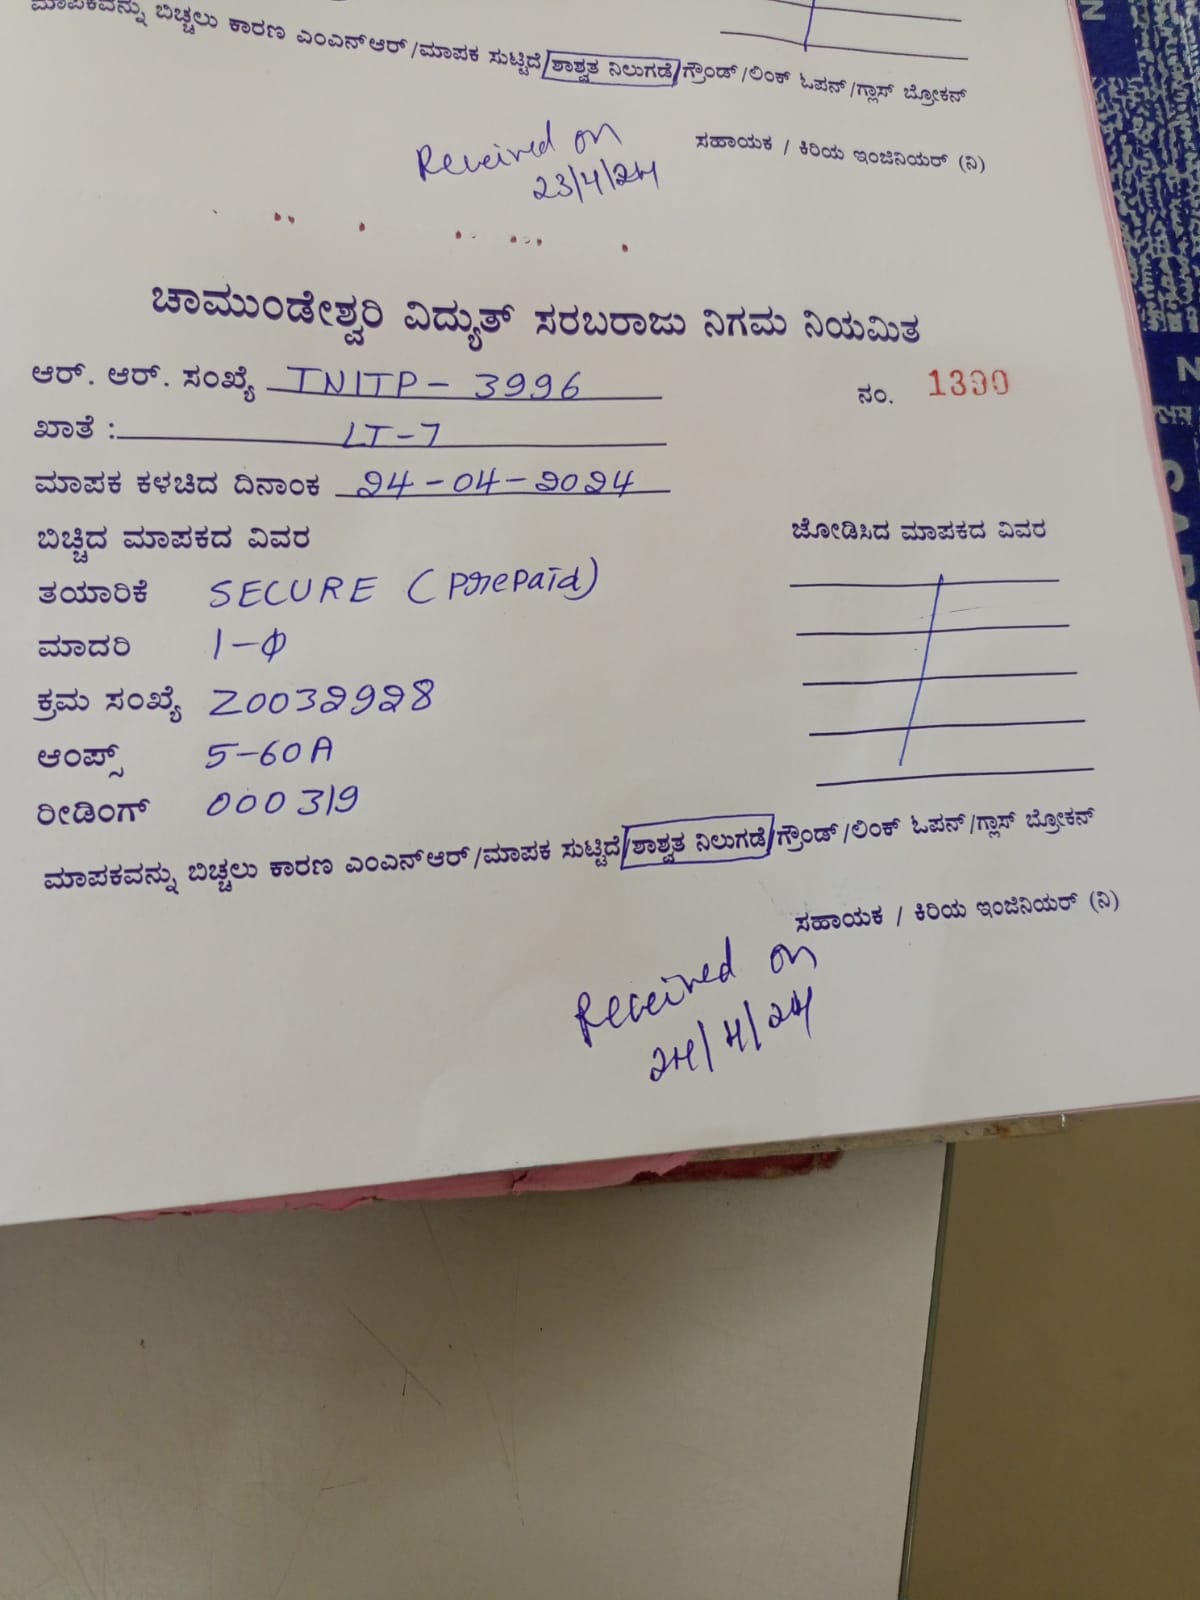 ಮಾಪಕವನ್ನು ಬಿಚ್ಚಲು ಕಾರಣ ಎಂಎನ್ಆರ್/ಮಾಪಕ ಸುಟ್ಟಿದೆ/ಶಾಶ್ವತ ನಿಲುಗಡೆ/ಗ್ರೌಂಡ್/ಲಿಂಕ್ ಓಪನ್/ಗ್ಲಾಸ್ ಬ್ರೋಕನ್
ಸಹಾಯಕ / ಕಿರಿಯ ಇಂಜಿನಿಯರ್ (ವಿ)
Received on
23/4/24
ಚಾಮುಂಡೇಶ್ವರಿ ವಿದ್ಯುತ್ ಸರಬರಾಜು ನಿಗಮ ನಿಯಮಿತ
ಆರ್. ಆರ್. ಸಂಖ್ಯೆ TNITP - 3996
ನಂ. 1390
ಖಾತೆ : LT-7
ಮಾಪಕ ಕಳಚಿದ ದಿನಾಂಕ 24-04-2024
ಬಿಚ್ಚಿದ ಮಾಪಕದ ವಿವರ
ಜೋಡಿಸಿದ ಮಾಪಕದ ವಿವರ
ತಯಾರಿಕೆ SECURE (Prepaid)
ಮಾದರಿ 1-Φ
ಕ್ರಮ ಸಂಖ್ಯೆ Z0032928
ಆಂಪ್ಸ್ 5-60A
ರೀಡಿಂಗ್ 000319
ಮಾಪಕವನ್ನು ಬಿಚ್ಚಲು ಕಾರಣ ಎಂಎನ್ಆರ್/ಮಾಪಕ ಸುಟ್ಟಿದೆ/ಶಾಶ್ವತ ನಿಲುಗಡೆ/ಗ್ರೌಂಡ್/ಲಿಂಕ್ ಓಪನ್/ಗ್ಲಾಸ್ ಬ್ರೋಕನ್
ಸಹಾಯಕ / ಕಿರಿಯ ಇಂಜಿನಿಯರ್ (ವಿ)
Received on
24/4/24